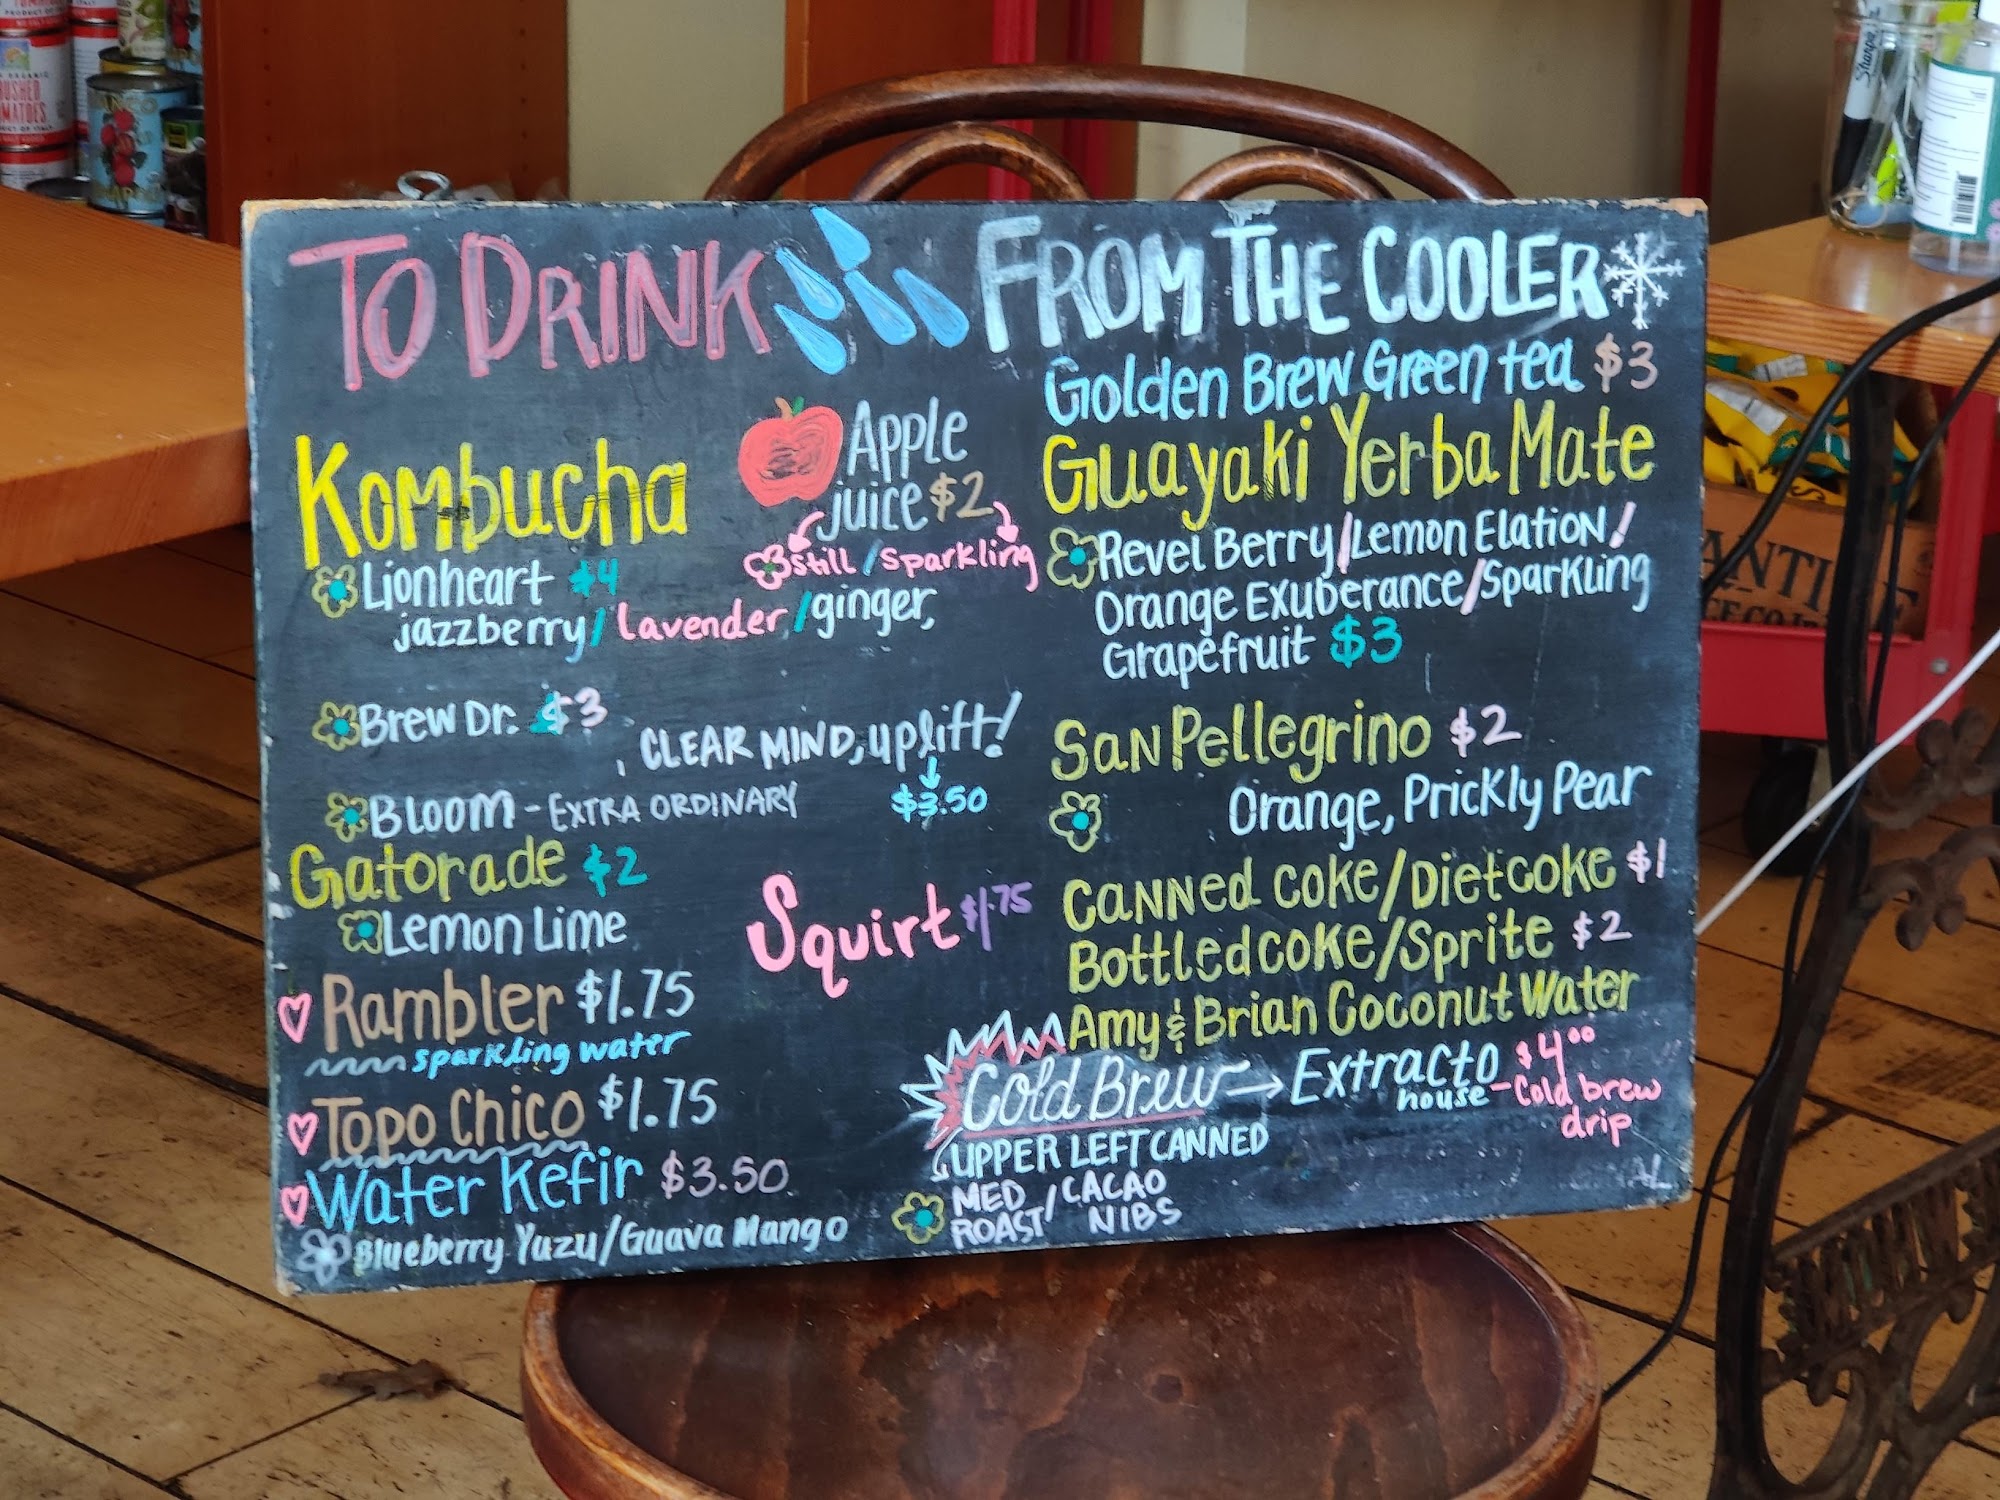 TO DRINK
Kombucha
Lionheart $4
jazzberry/lavender/ginger,
Apple
juice $2
still/sparkling
Brew Dr. $3
, CLEAR MIND, uplift!
BLOOM - EXTRA ORDINARY
$3.50
Gatorade $2
Lemon Lime
Squirt $1.75
Rambler $1.75
sparkling water
Topo Chico $1.75
Water Kefir $3.50
Blueberry Yuzu/Guava Mango
FROM THE COOLER
Golden Brew Green tea $3
Guayaki Yerba Mate
Revel Berry/Lemon Elation/
Orange Exuberance/Sparkling
Grapefruit $3
San Pellegrino $2
Orange, Prickly Pear
Canned Coke/Diet Coke $1
Bottled Coke/Sprite $2
Amy & Brian Coconut Water
Cold Brew → Extracto $4.00
house - Cold brew
drip
UPPER LEFT CANNED
MED ROAST / CACAO NIBS
AL
Sharpie